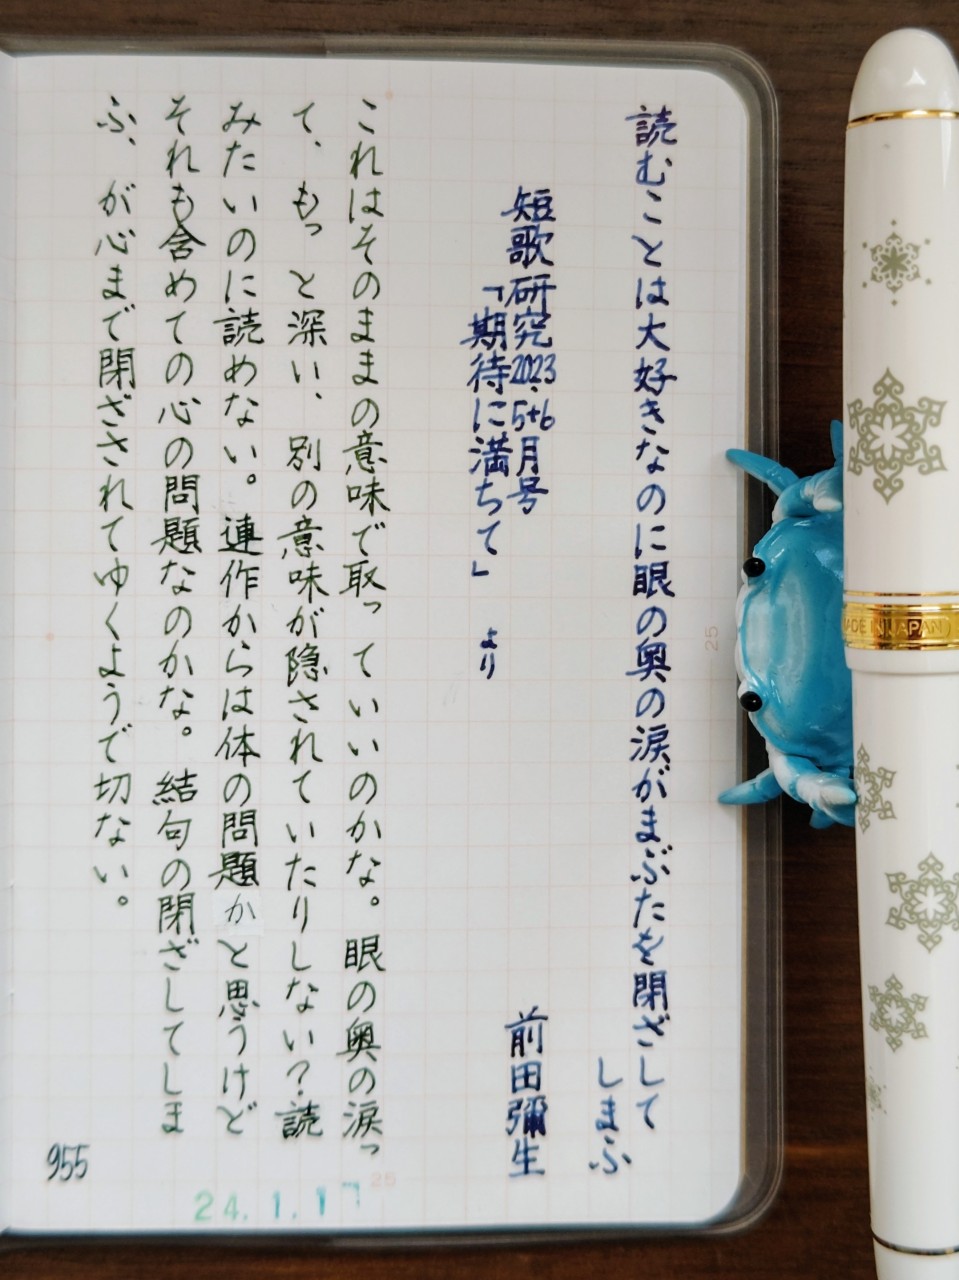 読むことは大好きなのに眼の奥の涙がまぶたを閉ざして
しまふ
短歌研究2023.5+6月号
「期待に満ちて」 より
前田彌生
これはそのままの意味で取っていいのかな。眼の奥の涙っ
て、もっと深い、別の意味が隠されていたりしない?読
みたいのに読めない。連作からは体の問題かと思うけど
それも含めての心の問題なのかな。結句の閉ざしてしま
ふ、が心まで閉ざされてゆくようで切ない。
955
24.1.17
25
25
MADE IN JAPAN